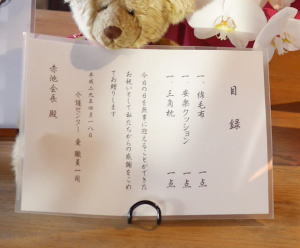 目録
一 綿毛布 一点
一 安楽クッション 一点
一 三角枕 一点
今日の日を無事に迎えることができた
お祝いとして私たちからの感謝をこめ
てお贈りします
平成二九年四月一八日
介護センター 愛 職員一同
赤池会長 殿